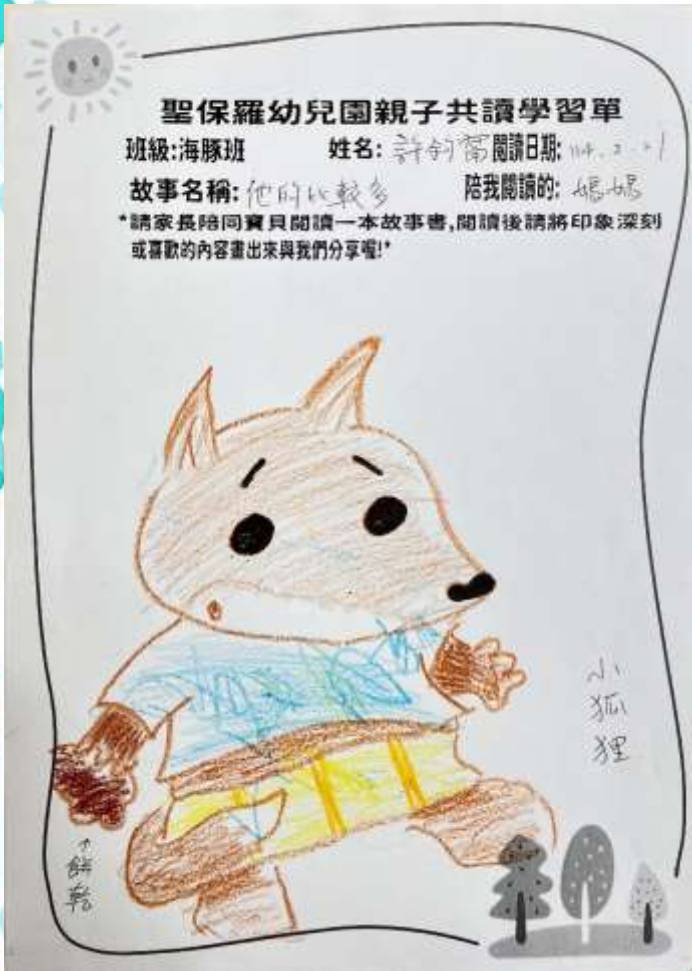 聖保羅幼兒園親子共讀學習單
班級:海豚班 姓名: 許鈞 閱讀日期: 114.2.21
故事名稱: 他的比較多 陪我閱讀的: 媽媽
*請家長陪同寶貝閱讀一本故事書,閱讀後請將印象深刻
或喜歡的內容畫出來與我們分享喔!*
小狐狸
↑餅乾